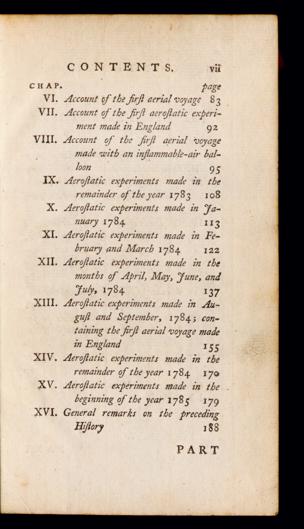 CONTENTS. vii
CHAP. page
VI. Account of the firſt aerial voyage 83
VII. Account of the firſt aeroſtatic experi-
ment made in England 92
VIII. Account of the firſt aerial voyage
made with an inflammable-air bal-
loon 95
IX. Aeroſtatic experiments made in the
remainder of the year 1783 108
X. Aeroſtatic experiments made in Ja-
nuary 1784 113
XI. Aeroſtatic experiments made in Fe-
bruary and March 1784 122
XII. Aeroſtatic experiments made in the
months of April, May, June, and
July, 1784 137
XIII. Aeroſtatic experiments made in Au-
guſt and September, 1784; con-
taining the firſt aerial voyage made
in England 155
XIV. Aeroſtatic experiments made in the
remainder of the year 1784 170
XV. Aeroſtatic experiments made in the
beginning of the year 1785 179
XVI. General remarks on the preceding
Hiſtory 188
PART